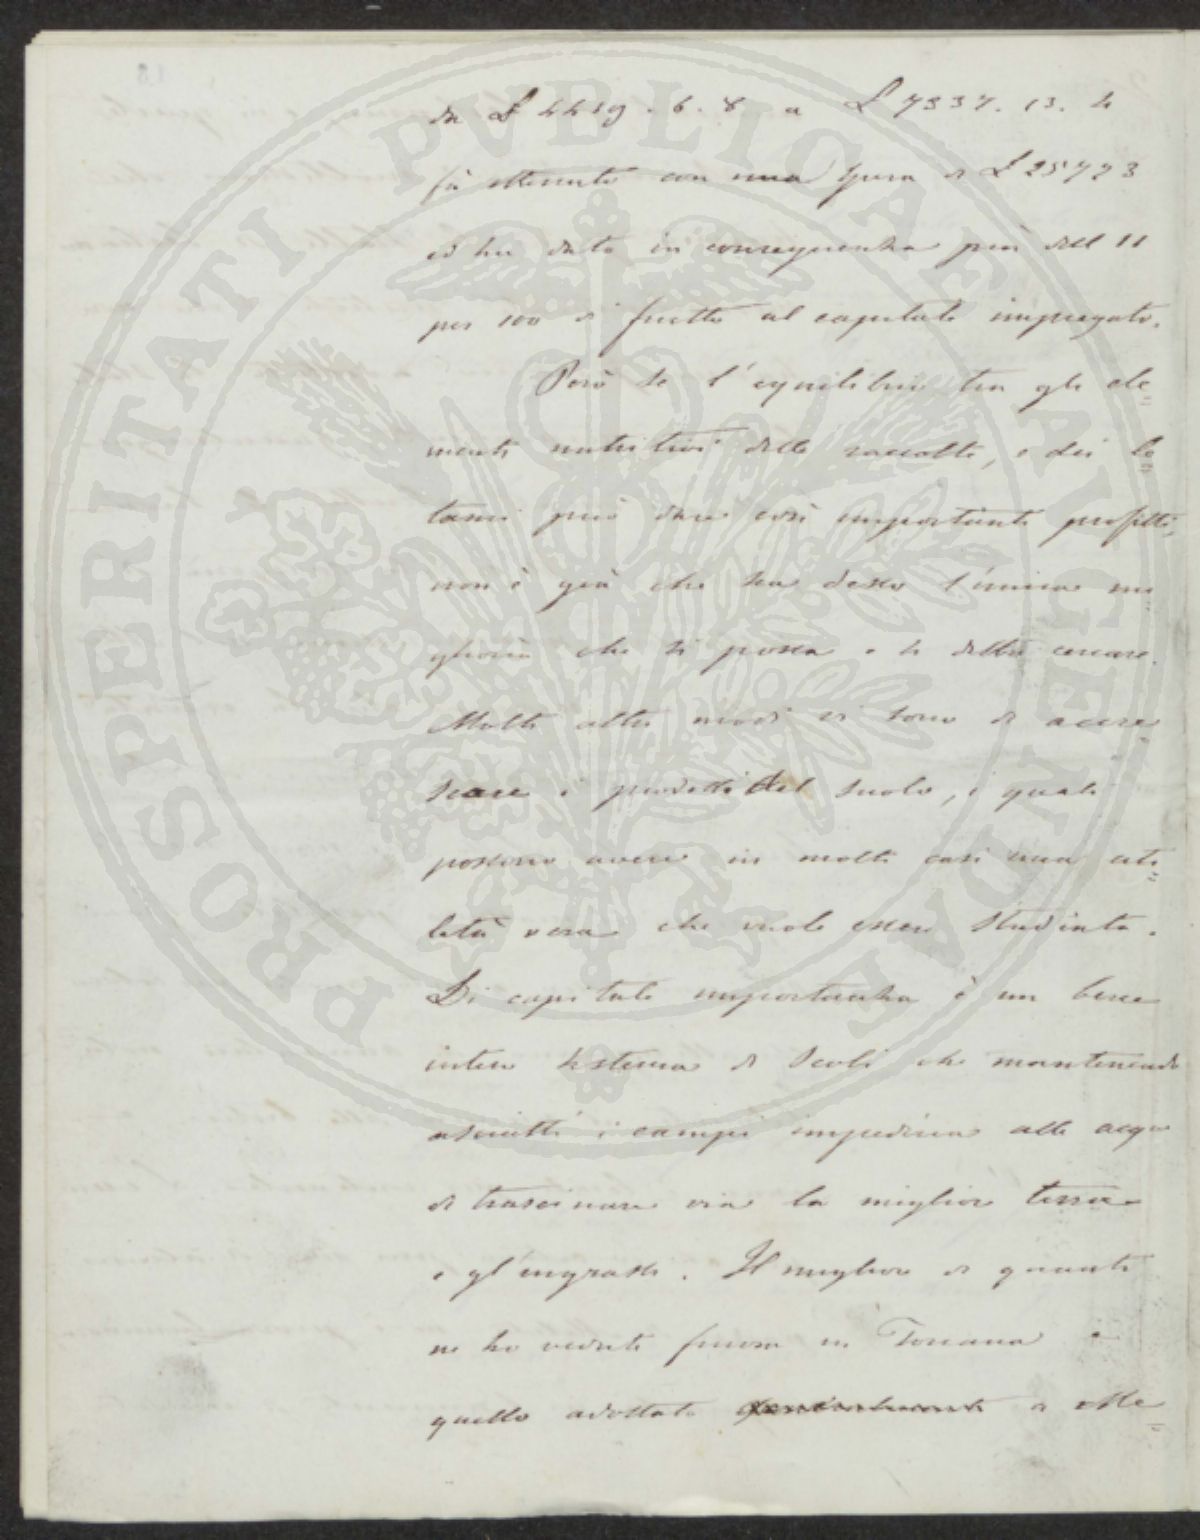 da £ 4419 . 6 . 8 a £ 7337 . 13 . 4
fù ottenuto con una spesa di £ 25723
ed ha dato in conseguenza più dell 11
per 100 di frutto al capitale impiegato.
Però se l'equilibrio tra gli ele=
menti nutritivi delle raccolte, e dei le=
tami può dare così importanti profitti,
non è già che sia desso l'unica mi=
glioria che si possa e si debba cercare.
Molti altri modi vi sono di accre=
scere i prodotti del suolo, i quali
possono avere in molti casi una uti=
lità vera che vuole essere studiata.
Di capitale importanza è un bene
inteso sistema di scoli che mantenendo
asciutti i campi impedisca alle acque
di trascinare via la miglior terra
e gl'ingrassi. Il migliore di quanti
ne ho veduti finora in Toscana è
quello adottato a Mle=
PROSPERITATI PVBLICAE AVGENDAE